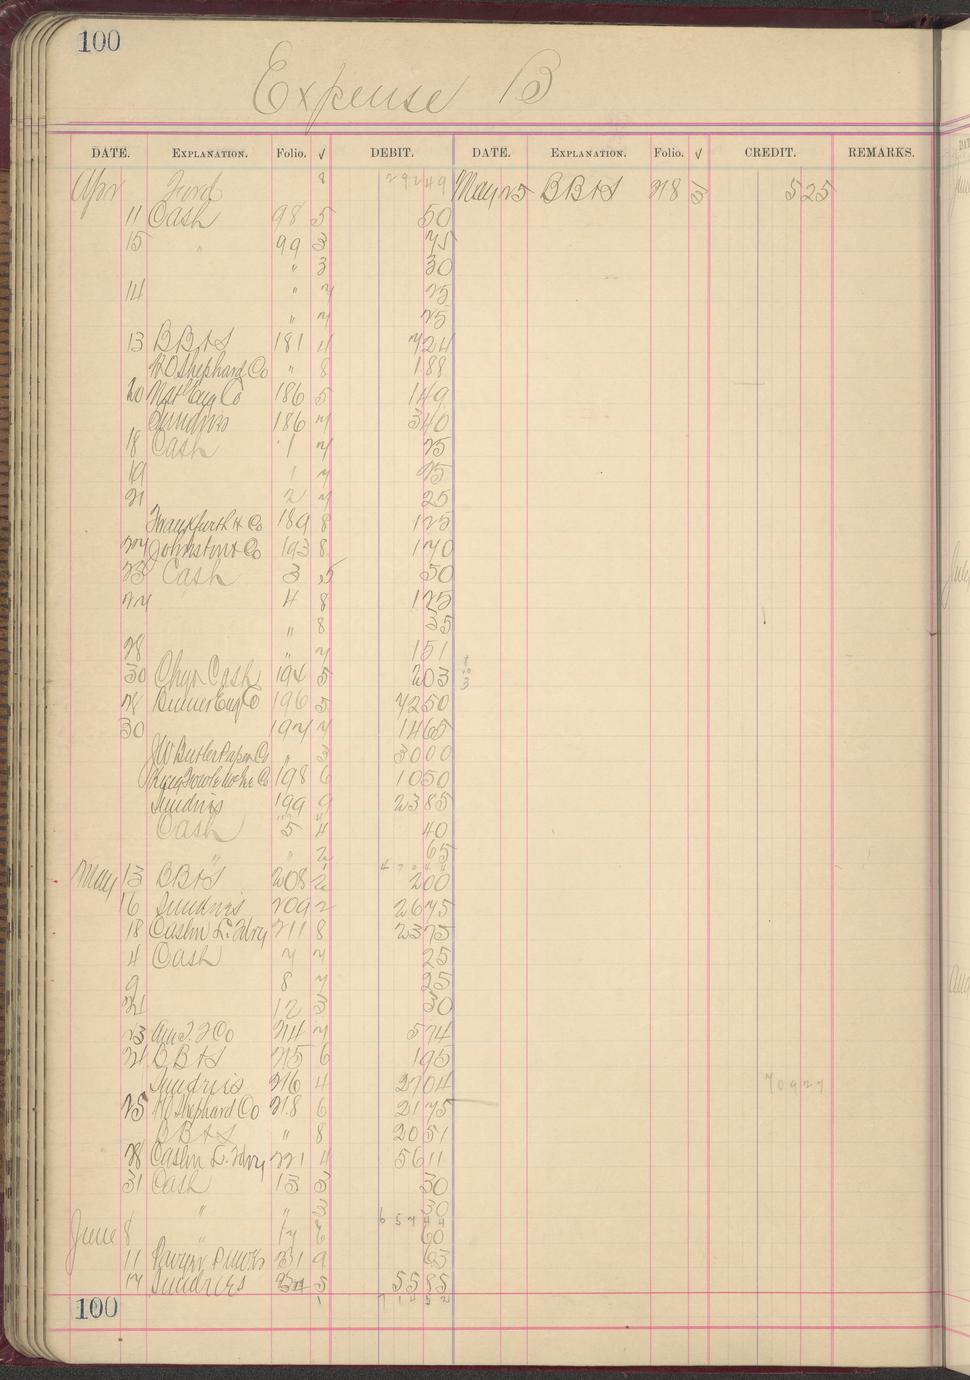 100
Expense B
DATE. EXPLANATION. Folio. √ DEBIT. DATE. EXPLANATION. Folio. √ CREDIT. REMARKS.
Apr Ford 8 29249 May 25 BB&S 218 3 525
11 Cash 98 5 50
15 " 99 3 75
" 3 30
14 " 7 25
" 7 25
13 BB&S 181 4 724
H O Shephard Co " 8 188
20 Nat Eng Co 186 5 149
Sundries 186 7 340
18 Cash 1 7 25
19 1 7 25
21 2 7 25
Frankfurth H Co 189 8 125
27 Johnston & Co 193 8 170
23 Cash 3 5 50
27 4 8 125
" 8 35
28 " 7 151
30 Cash 194 5 203
28 Binner Eng Co 196 5 4250
30 197 7 1465
J W Butler Paper Co " 3 3000
198 6 1050
Sundries 199 9 2385
Cash 5 4 40
" " 2 65
May 13 BB&S 208 2 200
16 Sundries 209 2 2675
18 Caslon T. Fdry 211 8 2375
4 Cash 7 7 25
9 8 7 25
21 12 3 30
23 Am T. F Co 214 7 574
21 BB&S 215 6 195
Sundries 216 4 2704
70927
25 H O Shephard Co 218 6 2175
BB&S " 8 2051
28 Caslon T. Fdry 221 4 5611
31 Cash 13 3 30
" " 3 30
65744
June 8 " 17 6 60
11 231 9 63
17 Sundries 234 5 5585
100 71452